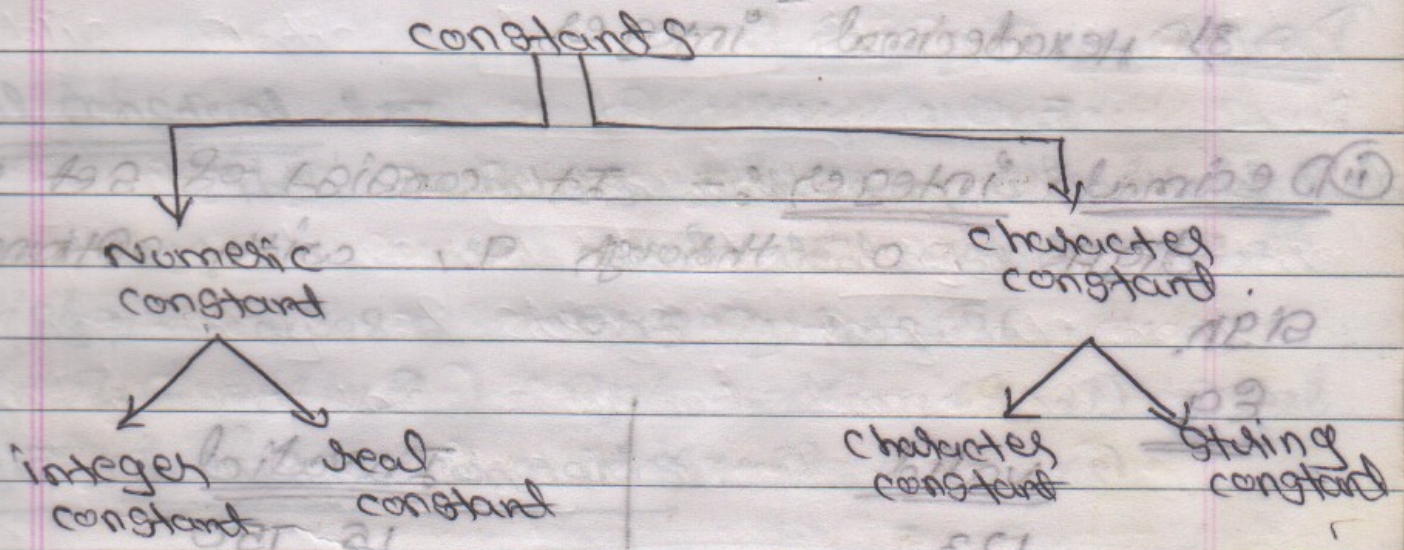 constants
Numeric
constant
character
constant.
integer
constant
real
constant
character
constant
string
constant